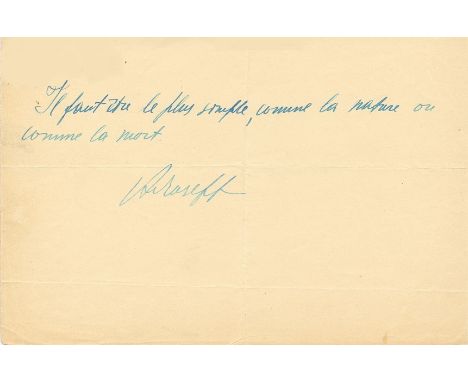 Il faut être le plus simple, comme la nature ou
comme la mort.
Aroseff